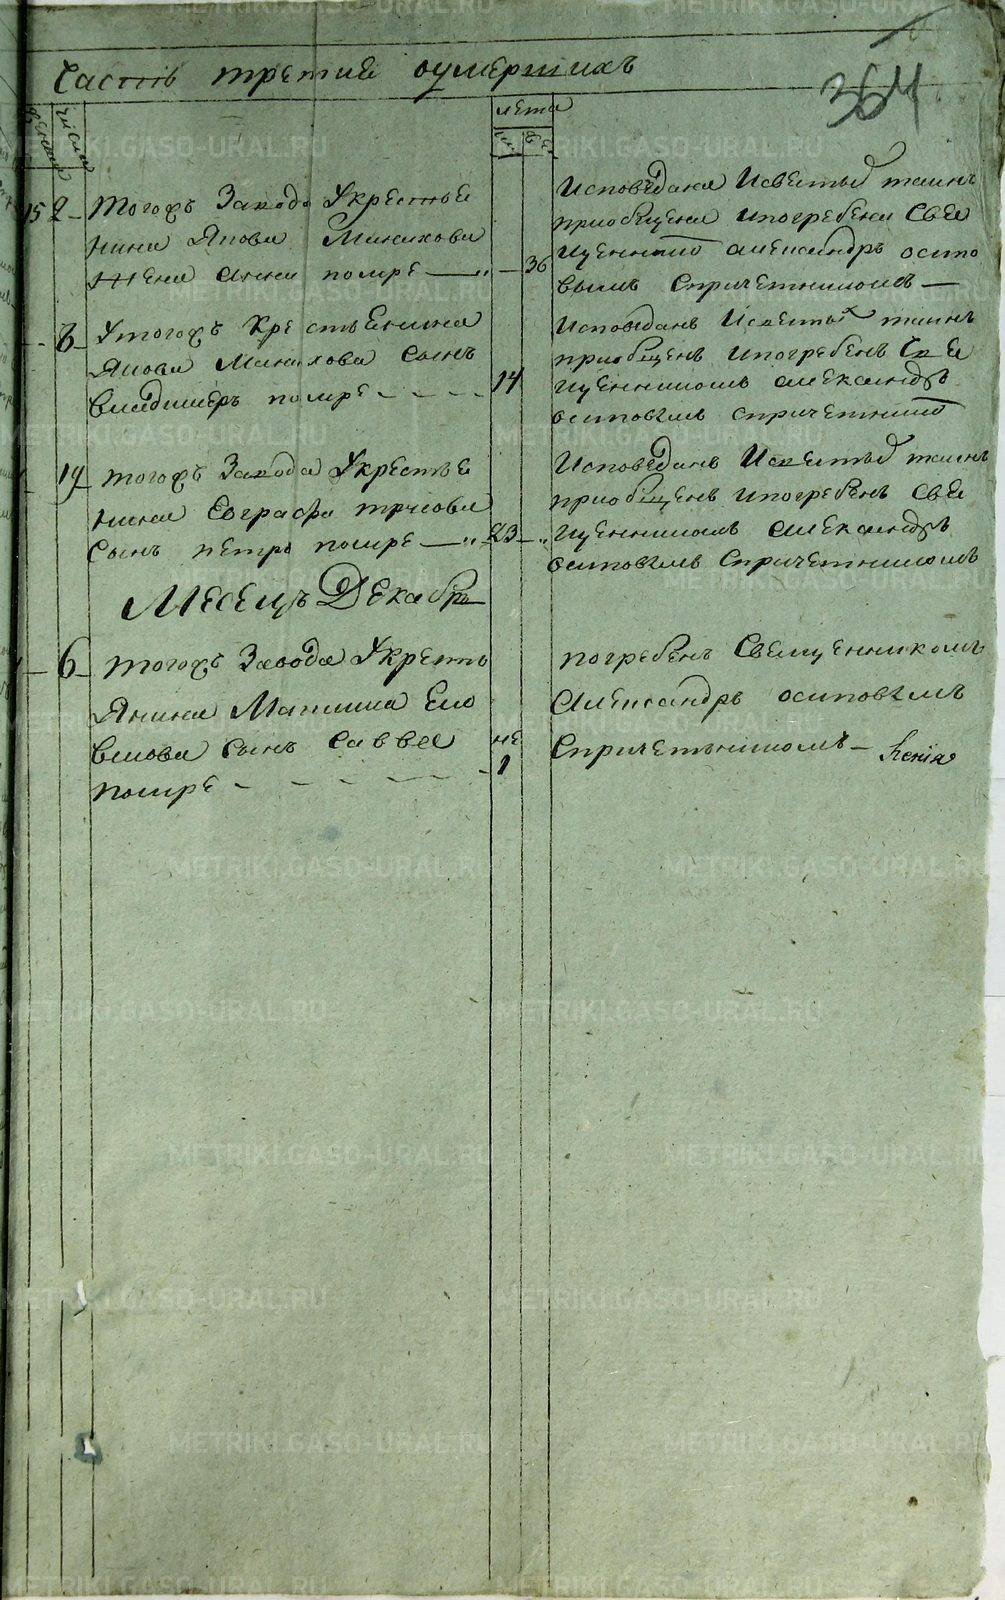 Часть третия оумершихъ
364
лета
15 2 тогожъ Завода Укрестья
нина Якова Минихова
жена анна помре 36
Исповедана Исвятыхъ таинъ
приобщена ипогребена Свя
щенникомъ александръ осипо
вымъ Спричетникомъ
8 Утогожъ Крестьянина
Якова Манихова Сынъ
владимеръ помре 14
Исповеданъ Исвятыхъ таинъ
приобщенъ ипогребенъ Свя
щенникомъ александръ
осиповымъ спричетникомъ
19 тогожъ Завода Укрестья
нина Евграфа
Сынъ петръ помре 23
Исповеданъ Исвятыхъ таинъ
приобщенъ ипогребенъ Свя
щенникомъ александръ
осиповымъ Спричетникомъ
Месецъ Декабрь
6 тогожъ Завода Укресть
Янина
Сынъ савва не
помре 1
погребенъ Свещенникомъ
Александръ осиповымъ
Спричетникомъ